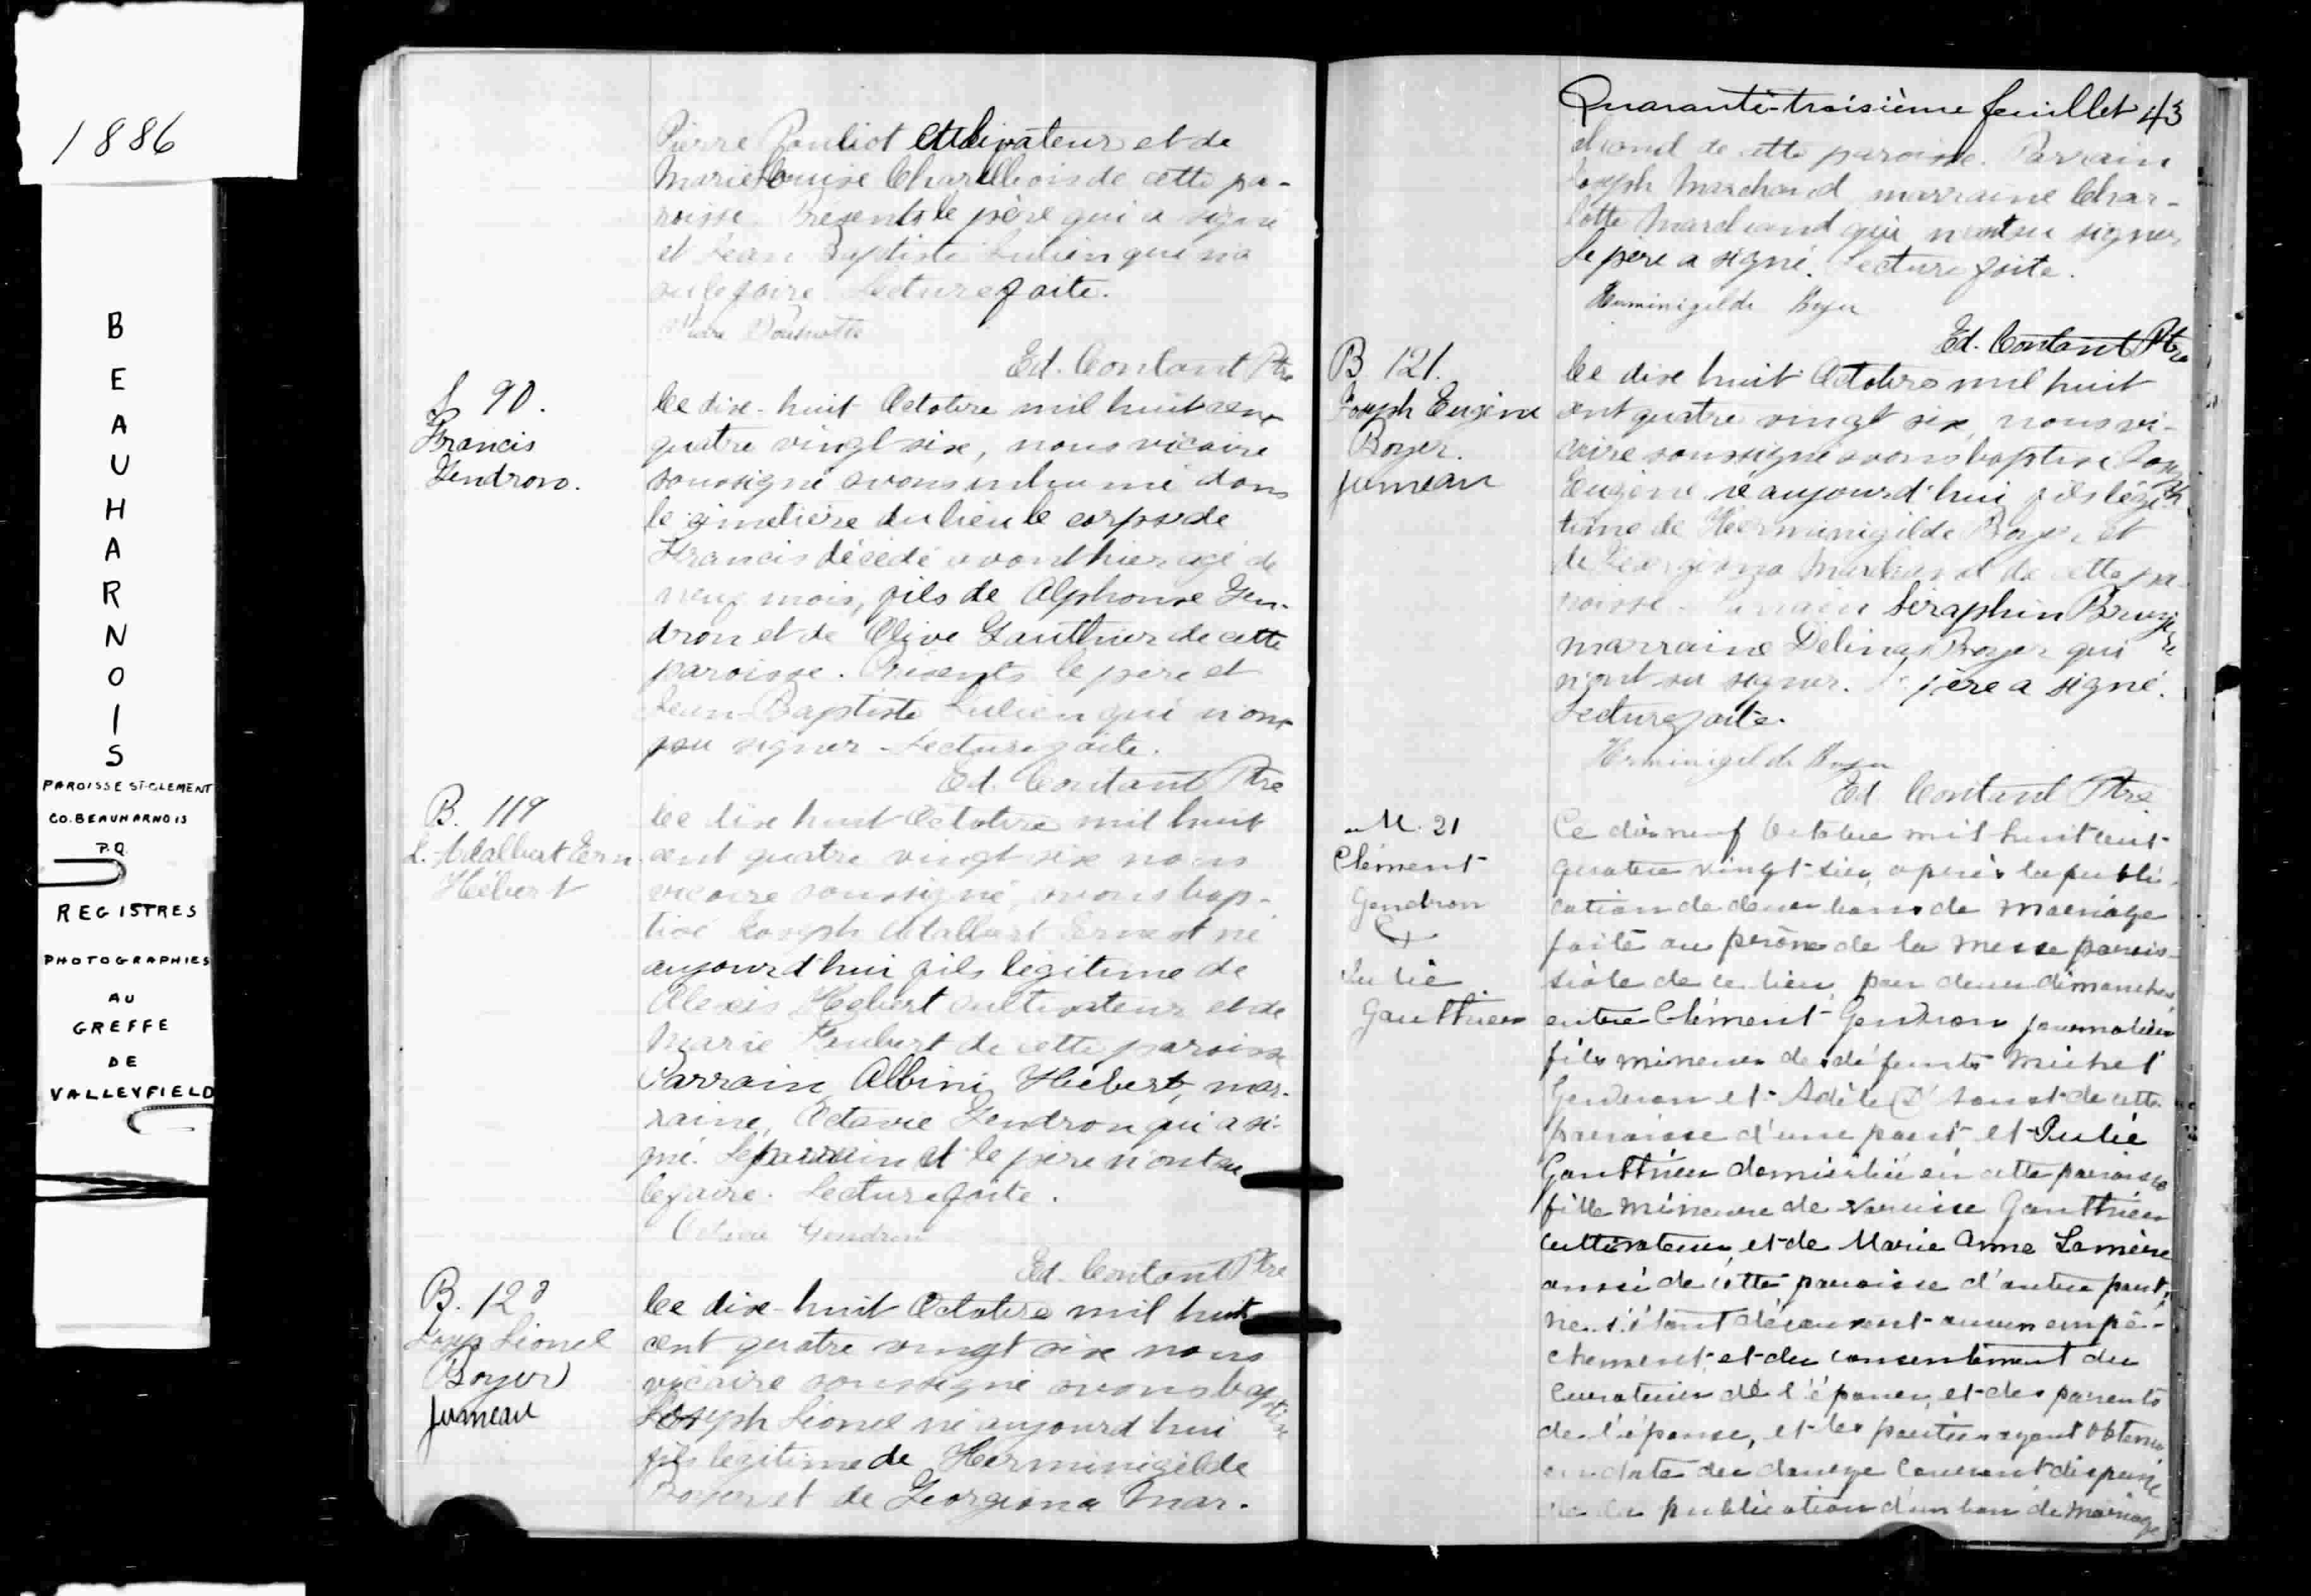 1886
BEAUHARNOIS
PAROISSE ST-CLEMENT
CO. BEAUHARNOIS
P.Q.
REGISTRES
PHOTOGRAPHIES
AU
GREFFE
DE
VALLEYFIELD
Pierre Pouliot cultivateur et de
Marie Louise Charlebois de cette pa-
roisse. Présents le père qui a signé
et Jean Baptiste Julien qui n'a
su le faire. Lecture faite.
Ed. Contant Ptre
S 90.
Francis
Gendron.
Ce dix-huit Octobre mil huit cent
quatre vingt six, nous vicaire
soussigné avons inhumé dans
le cimetière du lieu le corps de
Francis décédé avant hier agé de
neuf mois, fils de Alphonse Gen-
dron et de Olive Gauthier de cette
paroisse. Présents le père et
Jean-Baptiste Julien qui n'ont
su signer. Lecture faite.
Ed. Contant Ptre
B. 119
J. Adalbert Ern.
Hébert
Ce dix huit Octobre mil huit
cent quatre vingt six nous
vicaire soussigné, avons bap-
tisé Joseph Adalbert Ernest né
aujourd'hui fils légitime de
Alexis Hébert cultivateur et de
Marie de cette paroisse
Parrain Albini Hébert, mar-
raine, Octavie Gendron qui a si-
gné. Le parrain et le père n'ont su
le faire. Lecture faite.
Octavie Gendron
Ed. Contant Ptre
B. 120
Josep Lionel
Boyer
jumeau
Ce dix-huit Octobre mil huit
cent quatre vingt six nous
vicaire soussigné avons baptisé
Joseph Lionel né aujourd'hui
fils légitime de Herminigilde
Boyer et de Georgiana Mar-
Quarante-troisième feuillet 43
chand de cette paroisse. Parrain
Joseph Marchand marraine Char-
lotte Marchand qui n'ont su signer
Le père a signé. Lecture faite.
Herminigilde Boyer
Ed. Contant Ptre
B 121.
Joseph Eugène
Boyer.
jumeau
Ce dix huit Octobre mil huit
cent quatre vingt six, nous vi-
caire soussigné avons baptisé Joseph
Eugène né aujourd'hui fils légi-
time de Herminigilde Boyer et
de Georgiana Marchand de cette pa-
roisse. Parrain Séraphin Bruyère
marraine Délina Boyer qui
n'ont su signer. Le père a signé.
Lecture faite.
Herminigilde Boyer
Ed Contant Ptre
M. 21
Clément
Gendron
&
Julie
Gauthier
Ce dix neuf Octobre mil huit cent
quatre vingt-six, après la publi-
cation de deux bans de mariage
faite au prône de la messe parois-
siale de ce lieu, par deux dimanches,
entre Clément Gendron journalier
fils mineur de défunts Michel
Gendron et Adèle de cette
paroisse d'une part et Julie
Gauthier domiciliée en cette paroisse
fille mineure de Gauthier
cultivateur, et de Marie Anne
aussi de cette paroisse d'autre part,
ne s'étant découvert aucun empê-
chement, et du consentement du
curateur de l'époux, et des parents
de l'épouse, et les parties ayant obtenu
en date du douze courant dispense
de la publication d'un ban de mariage